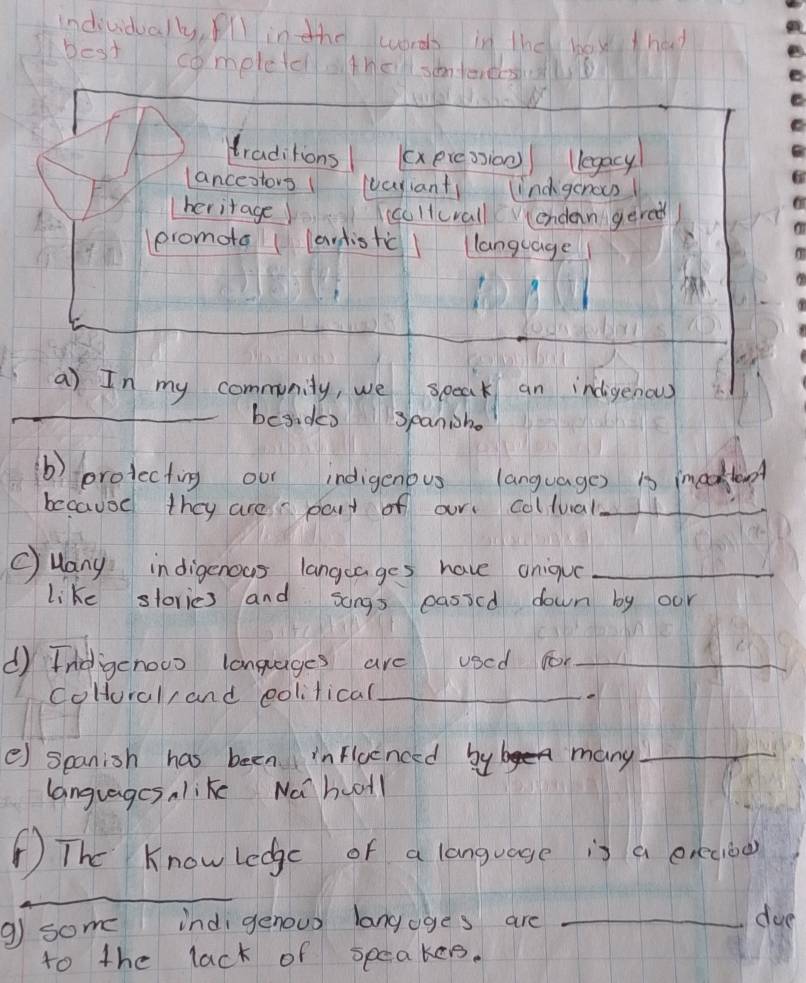 individually, fill in the words in the box that
best completel the sentences
traditions expression legacy
ancestors variant indigenous
heritage cultural endangered
promote artistic language
a) In my community, we speak an indigenous
besides spanish.
b) protecting our indigenous languages is important
because they are part of our coltural
c) Many indigenous languages have unique
like stories and songs passed down by our
d) Indigenous languages are used for
coltural, and political .
e) spanish has been influenced by many
languages like Náhuatl
f) The Knowledge of a language is a precious
g) some indigenous languges are due
to the lack of speakers.